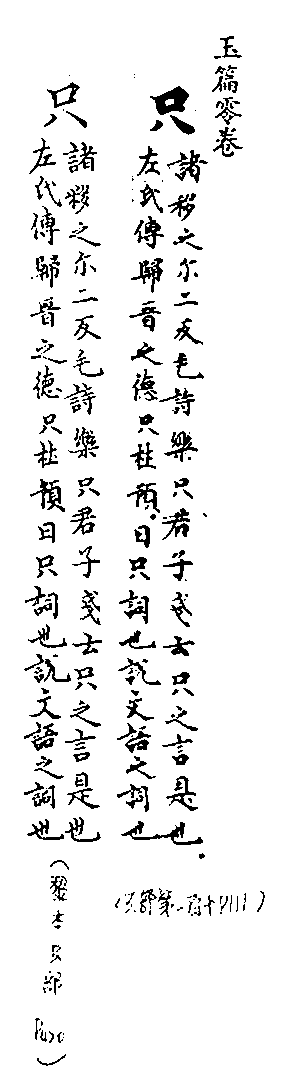 玉篇零卷
只
諸移之尒二反毛詩樂只君子戔云只之言是也
左氏傳歸晉之德只杜預曰只詞也說文語之詞也
(只部第一百十四)
只
諸移之尒二反毛詩樂只君子戔云只之言是也
左氏傳歸晉之德只杜預曰只詞也說文語之詞也
(黎本只部)